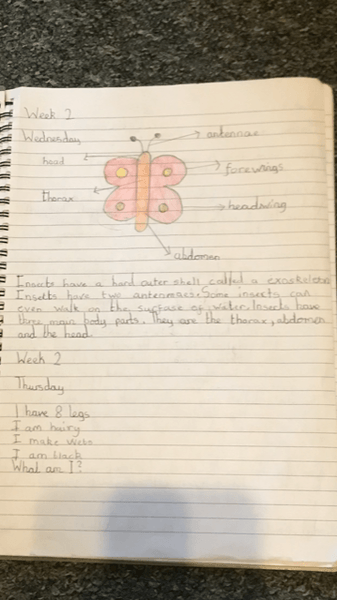 Week 2
Wednesday
antennae
head
forewings
thorax
headwing
abdomen
Insects have a hard outer shell called a exoskeleton
Insects have two antennaes. Some insects can
even walk on the surface of water. Insects have
three main body parts. They are the thorax, abdomen
and the head.
Week 2
Thursday
I have 8 legs
I am hairy
I make webs
I am black
What am I?